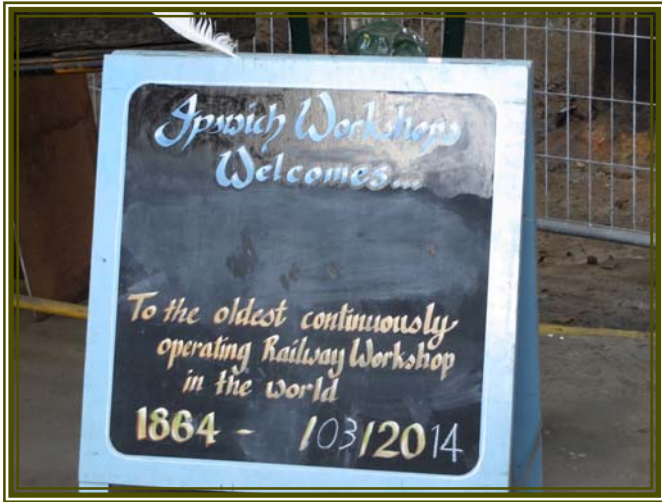 Ipswich Workshops
Welcomes...
To the oldest continuously
operating Railway Workshop
in the world
1864 - /03/2014